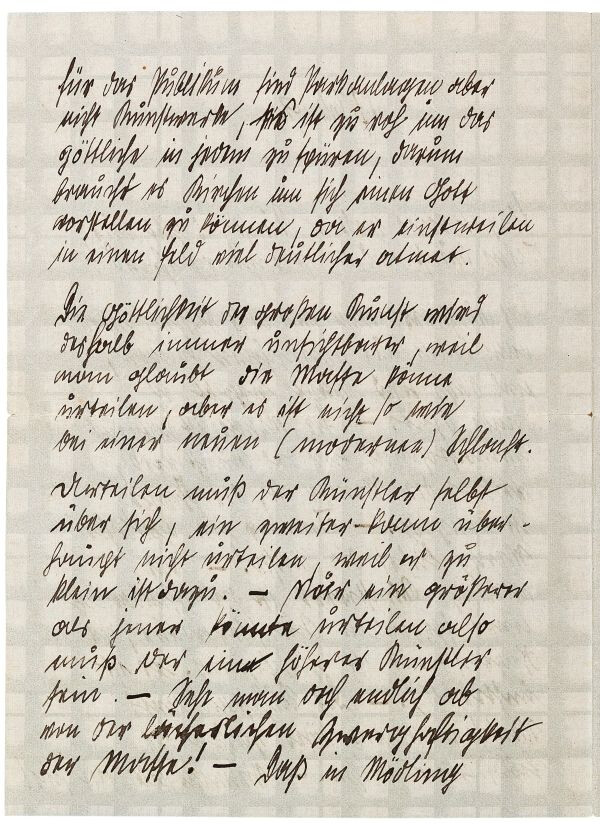 für das Publikum sind Parkanlagen aber
nicht Kunstwerke, ist zu roh um das
göttliche in jedem zu spüren, darum
braucht es Kirchen um sich einen Gott
vorstellen zu können, da er einstweilen
in einen Feld viel deutlicher atmet.
Die Göttlichkeit der großen Kunst wird
deshalb immer unsichtbarer, weil
man glaubt die Masse könne
urteilen, aber es ist nicht so wie
bei einer neuen (modernen) Schlacht.
Urteilen muß der Künstler selbst
über sich, ein zweiter kann über-
haupt nicht urteilen, weil er zu
klein ist dazu. – Nur ein größerer
als jener könnte urteilen also
muß der ein höherer Künstler
sein. – Seht man doch endlich ab
von der lächerlichen Zwerghaftigkeit
der Masse! – Daß in Mödling